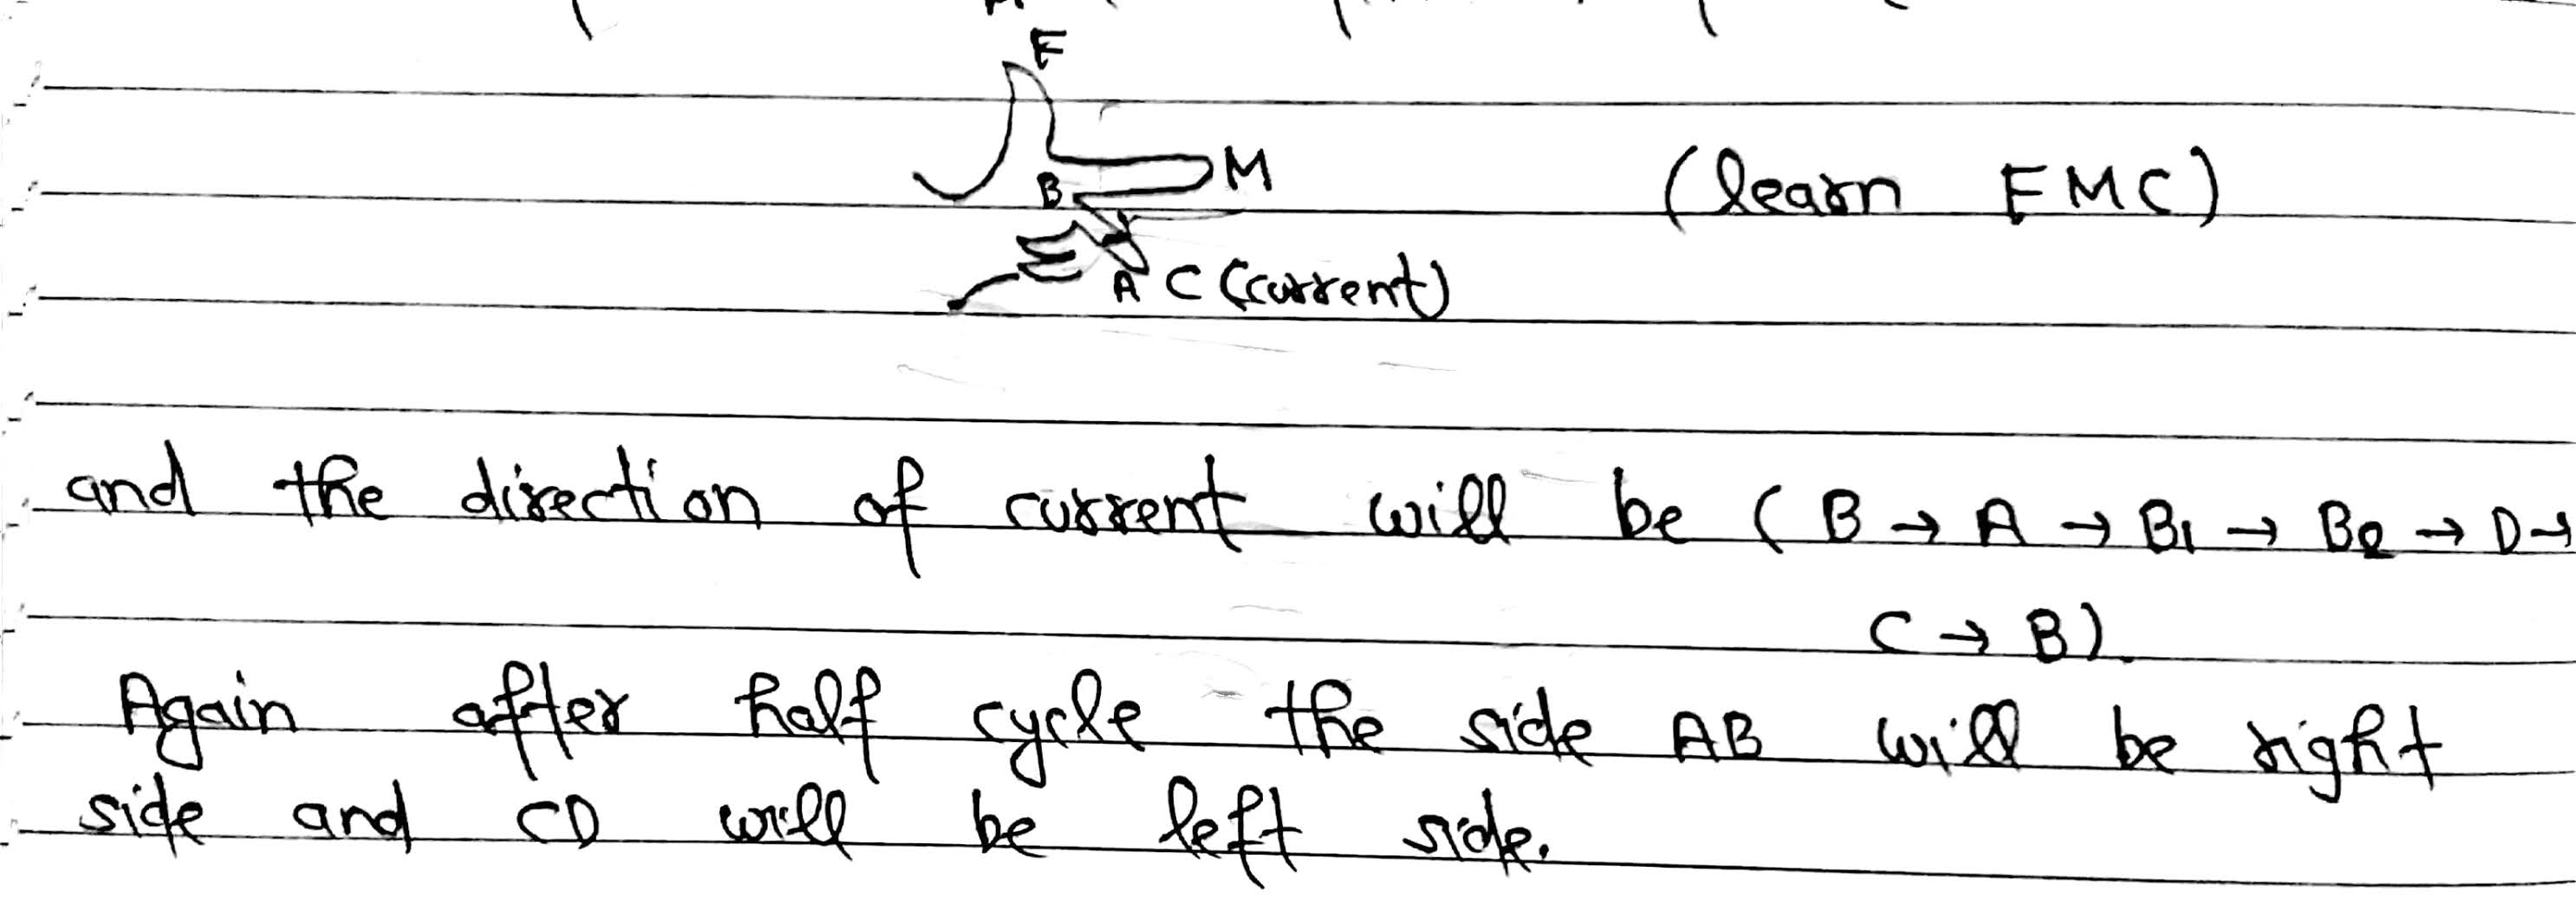 F
M
(learn FMC)
B
A C (current)
and the direction of current will be ( B → A → B1 → B2 → D →
C → B).
Again after half cycle the side AB will be right
side and CD will be left side.